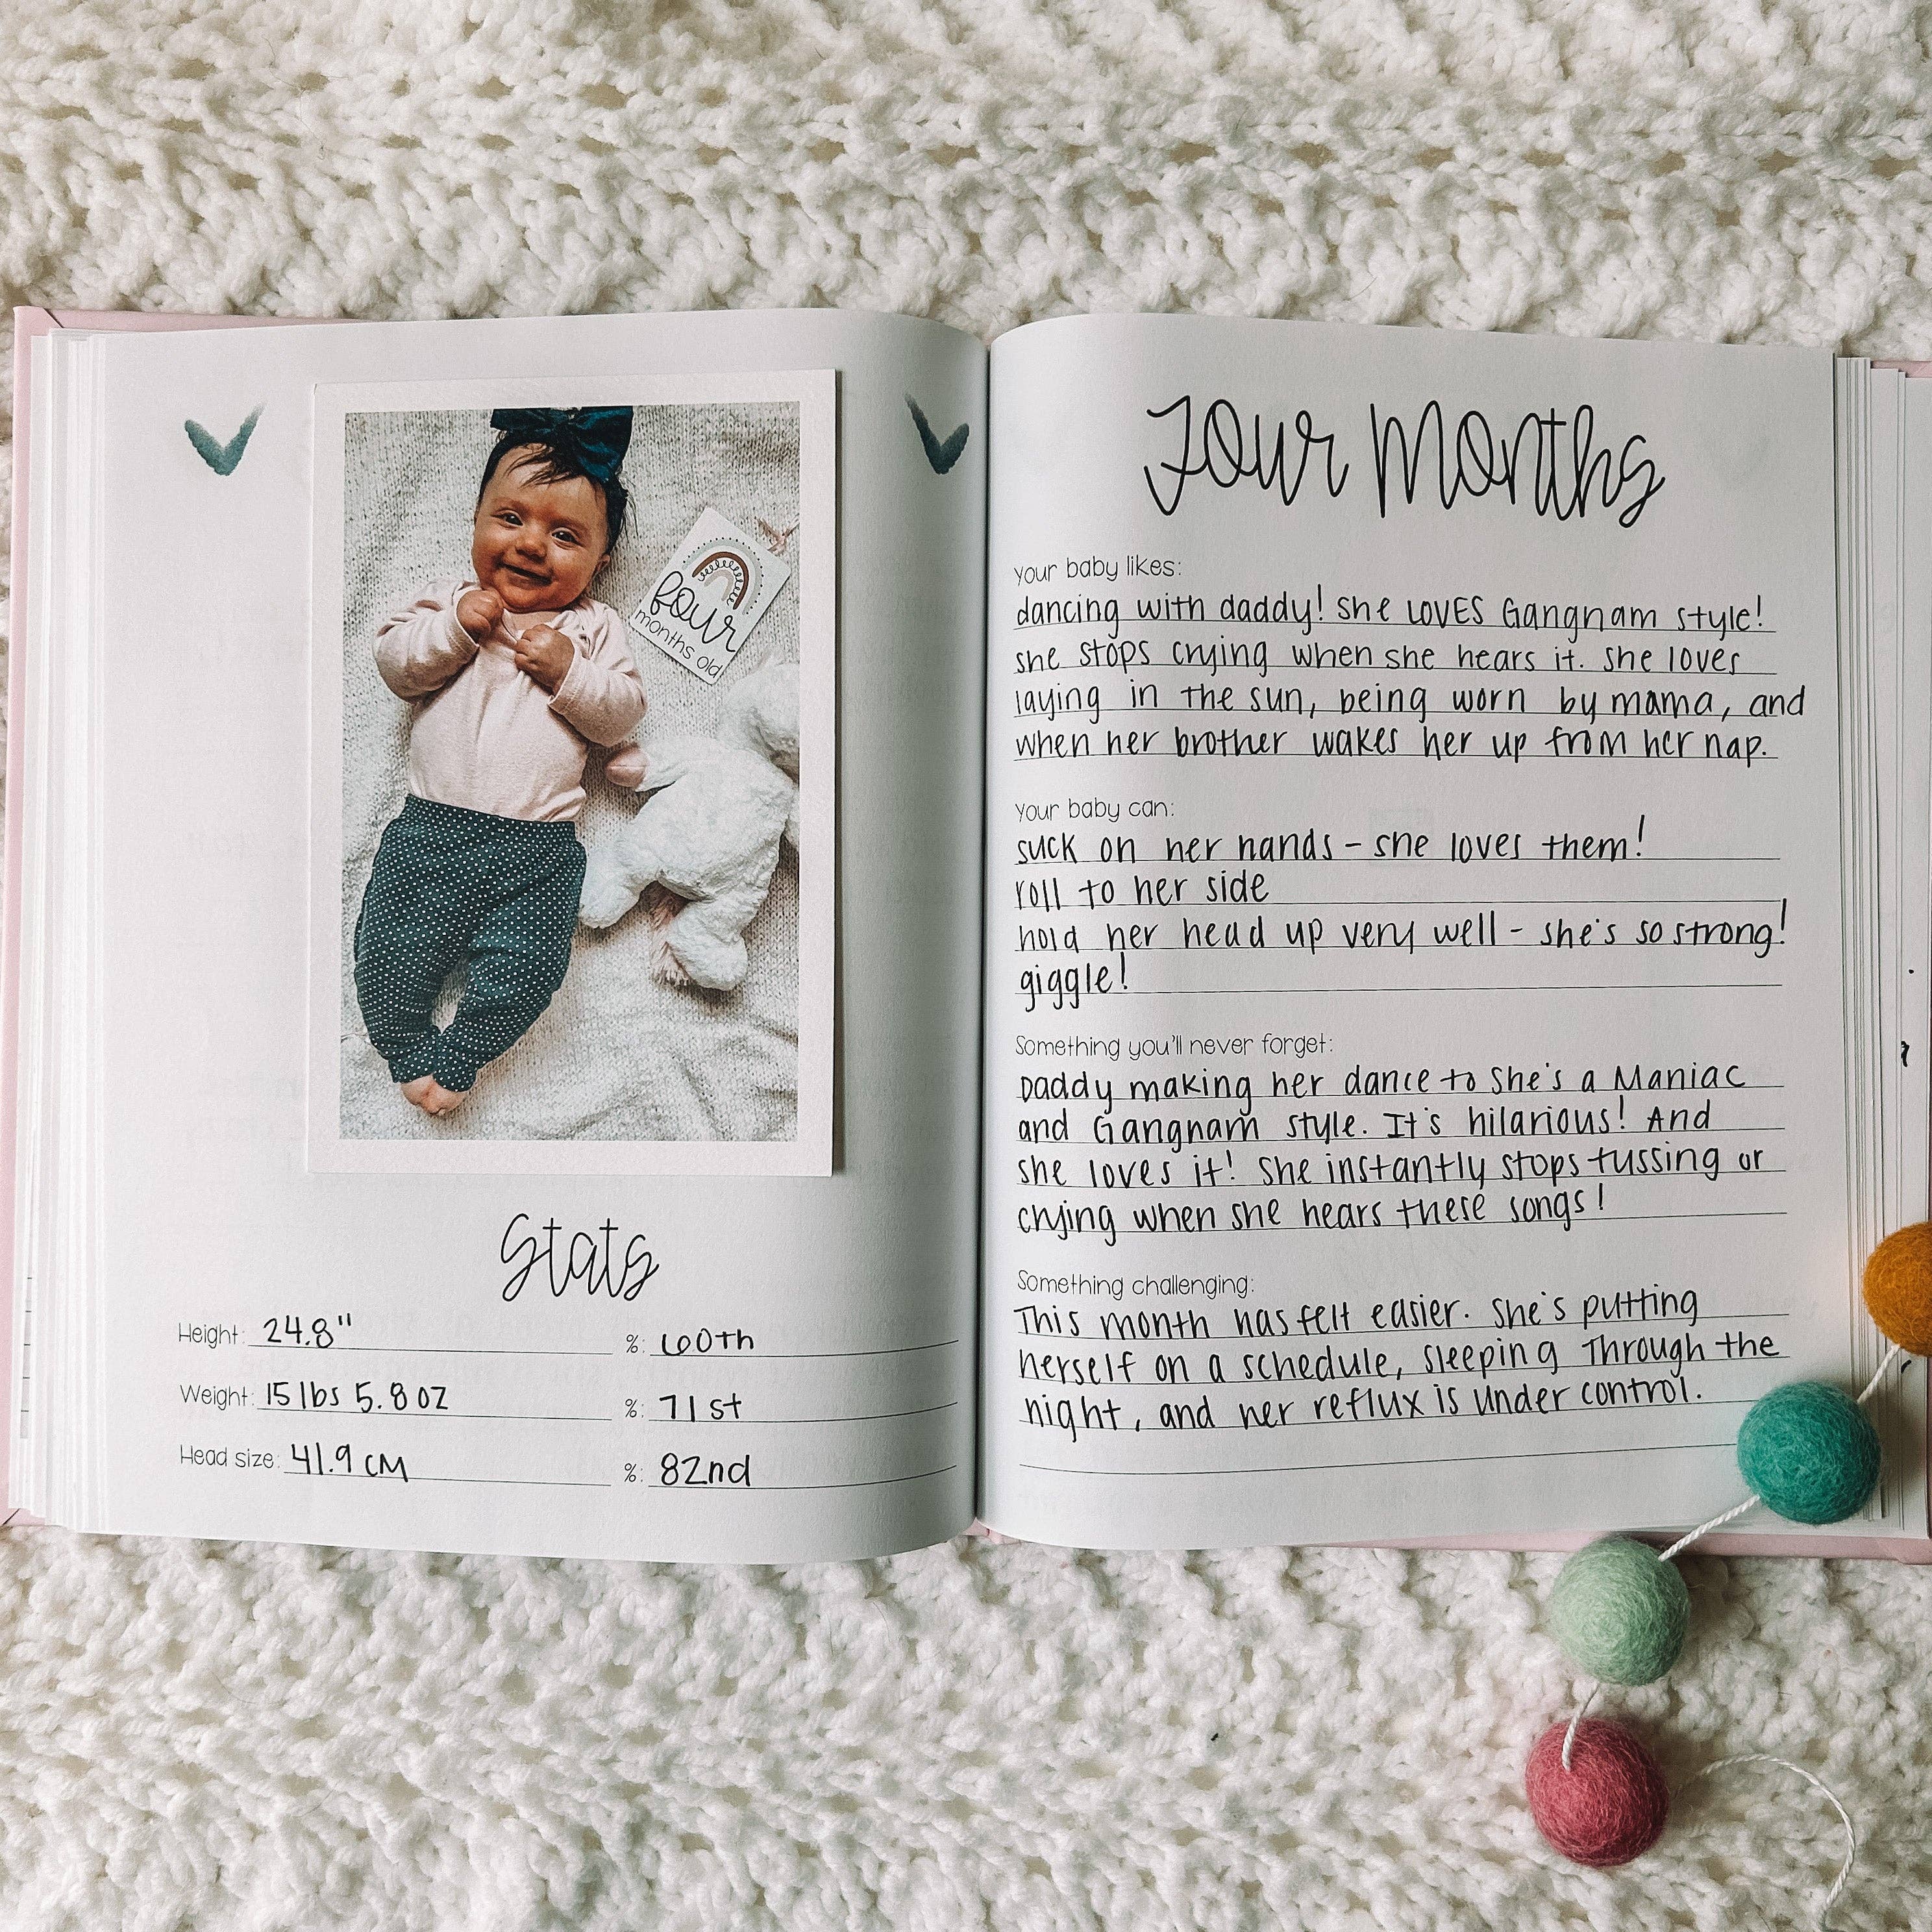 four
months old
Stats
Height: 24.8" %: 60th
Weight: 15 lbs 5.8 oz %: 71st
Head size: 41.9 cm %: 82nd
Four Months
your baby likes:
dancing with daddy! She LOVES Gangnam style!
she stops crying when she hears it. She loves
laying in the sun, being worn by mama, and
when her brother wakes her up from her nap.
your baby can:
suck on her hands - she loves them!
roll to her side
hold her head up very well - she's so strong!
giggle!
Something you'll never forget:
Daddy making her dance to She's a Maniac
and Gangnam style. It's hilarious! And
she loves it! She instantly stops fussing or
crying when she hears these songs!
Something challenging:
This month has felt easier. She's putting
herself on a schedule, sleeping through the
night, and her reflux is under control.